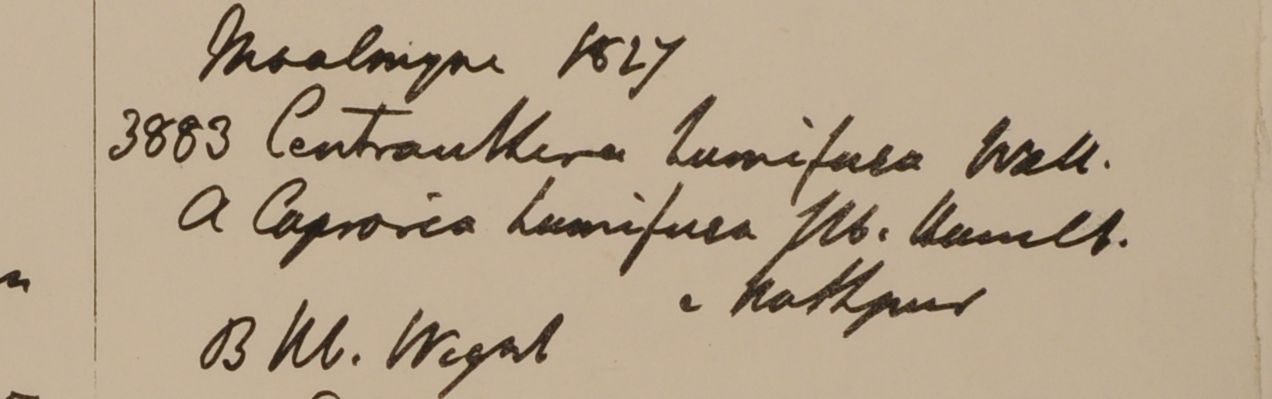 Moalmyne 1827
3883 Centranthera humifusa Wall.
A Capraria humifusa Hb. Hamilt.
e Nathpur
B Hb. Wight